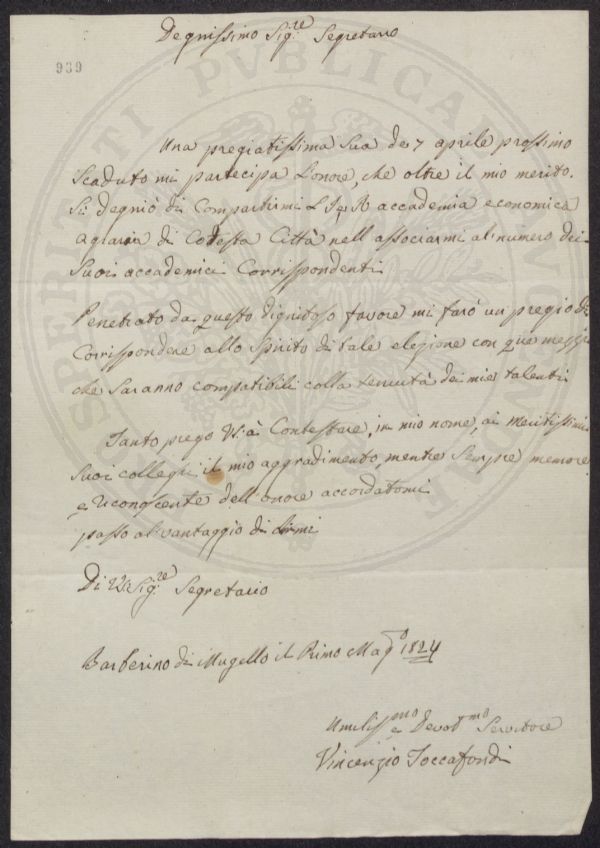 Degnissimo Sig.re Segretario
939
Una pregiatissima Sua de 7 aprile prossimo
Scaduto mi partecipa L'onore, che oltre il mio merito
Si degniò di Compartirmi L'I. e R. accademia economica
agraria di Codesta Città nell associarmi al numero dei
Suoi accademici Corrispondenti
Penetrato da questo dignitoso favore mi farò un pregio di
Corrispondere allo Spirito di tale elezione con que mezzi
che Saranno compatibili colla tenuità dei miei talenti
Tanto prego VS. à Contestare, in mio nome, ai meritissimi
Suoi colleghi il mio aggradimento, mentre Sempre memore
e riconoscente dell onore accordatomi
passo al vantaggio di dirmi
Di VS. Sig.re Segretario
Barberino di Mugello il Primo Magg.o 1824
Umiliss.mo e Devot.mo Servitore
Vincenzio Toccafondi